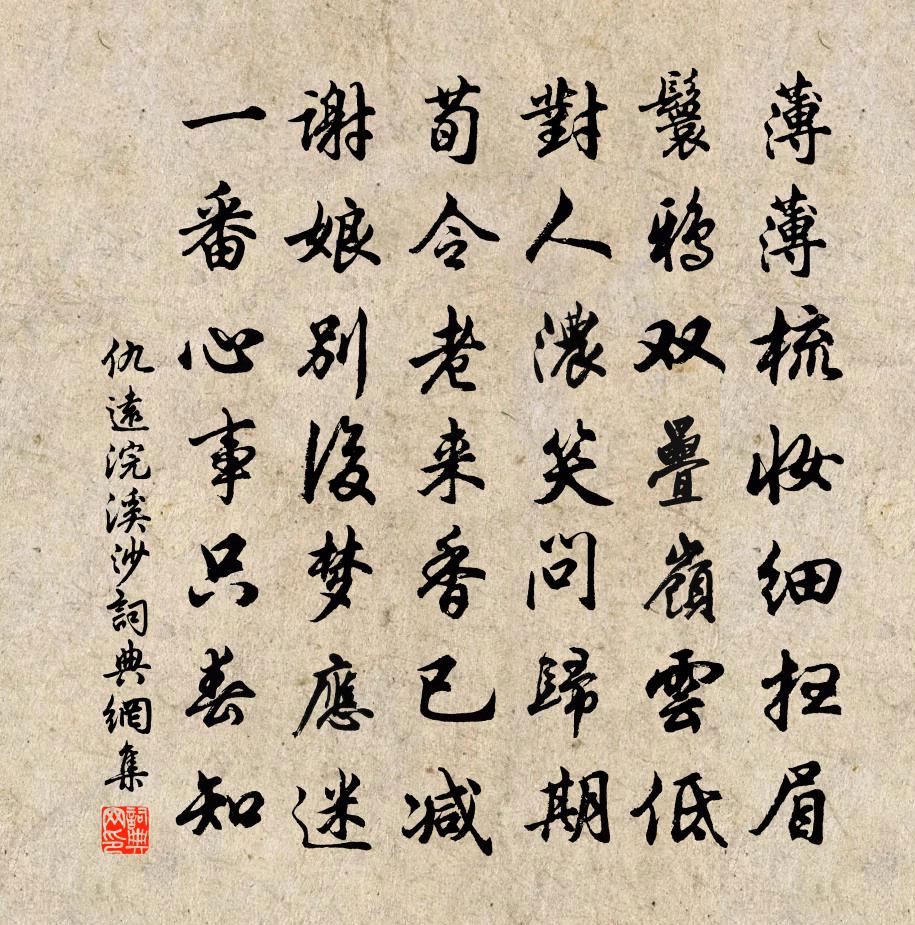 薄薄梳妆细扫眉
鬟鸦双疊嶺雲低
對人濃笑問歸期
荀令老来香已减
谢娘别後梦應迷
一番心事只春知
仇遠浣溪沙詞典網集
詞典网印